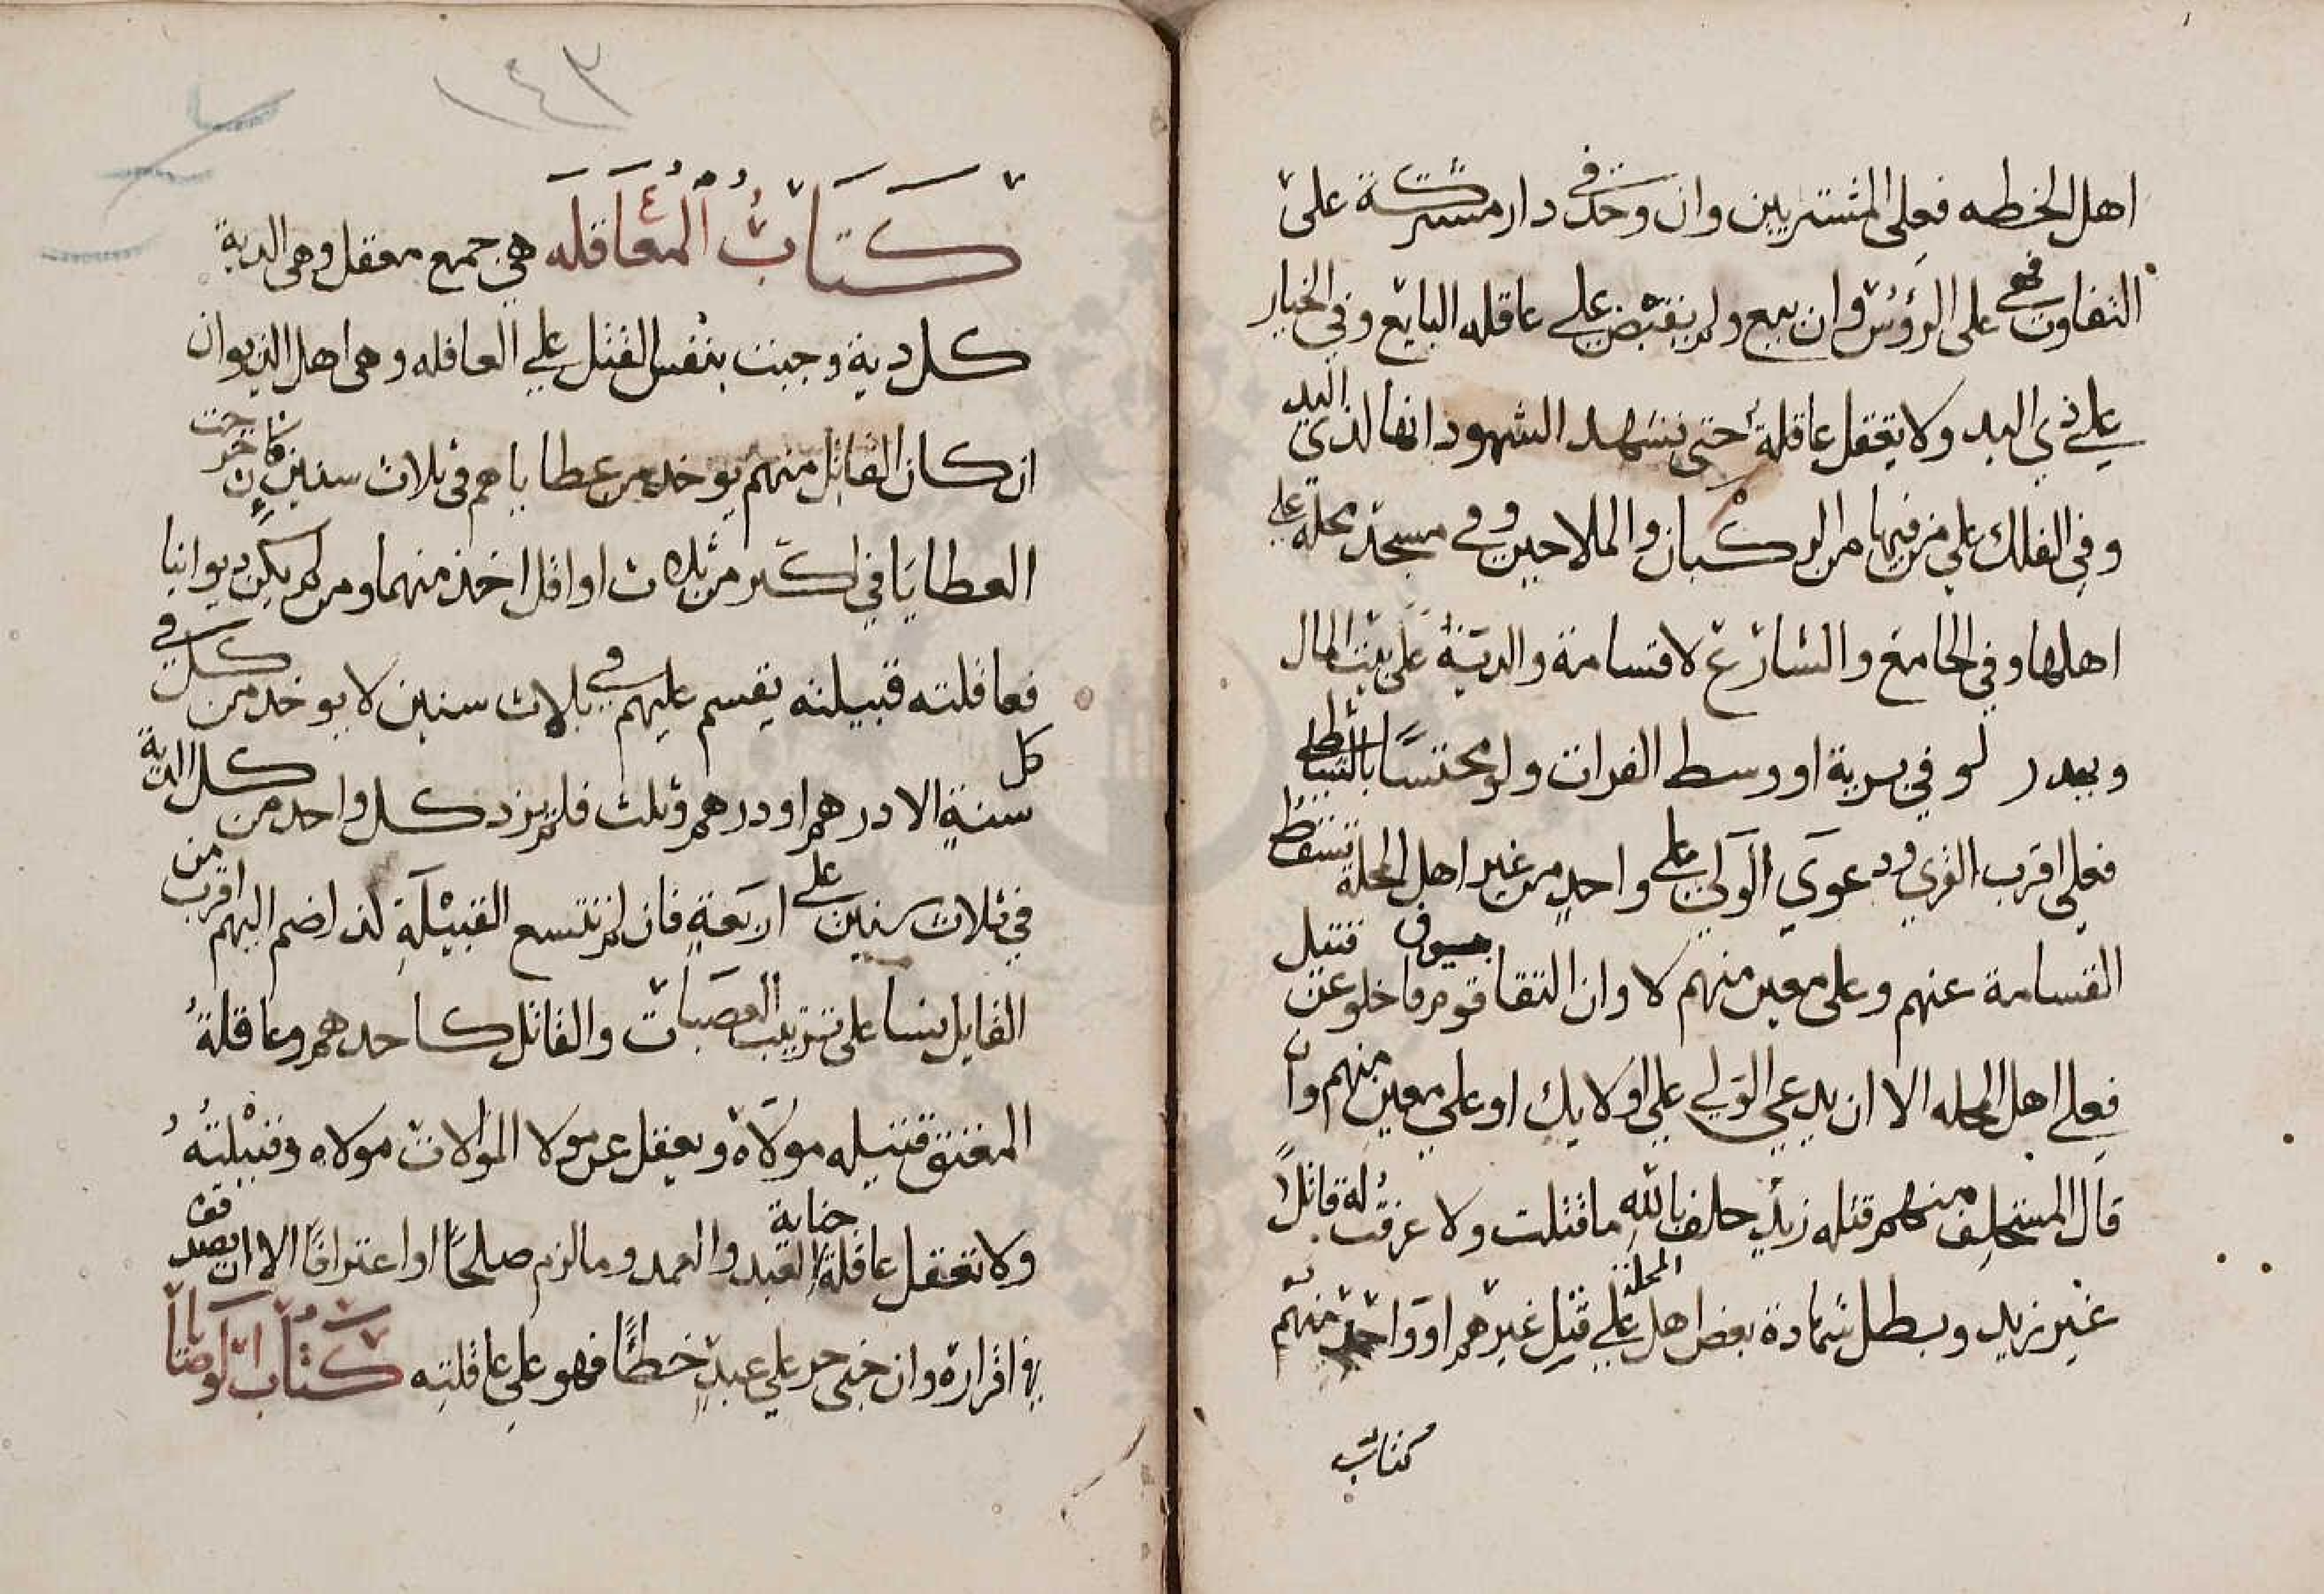 اهل الخطه فعلى المشتريين وان وجد في دار مشتركة على
التفاوت فهى على الرؤس وان بيع ولم يقبض على عاقله البايع وفي الخيار
على ذي اليد ولا يعقل عاقلة حتى يشهد الشهود انها لذي اليد
وفي الفلك على من فيها من الركبان والملاحين وفي مسجد محلة على
اهلها وفي الجامع والشارع لا قسامة والدية على بيت المال
ويهدر لو في برية او وسط الفرات ولو محتبسا بالشاطى
فعلى اقرب القرى ودعوى الولى على واحد من غير اهل المحلة تسقط
القسامة عنهم وعلى معين منهم لا وان التقا قوم بسيوف فاخلو عن قتيل
فعلى اهل المحله الا ان يدعي الولي على اولايك او على معين منهم وان
قال المستحلف منهم قتله زيد حلف بالله ما قتلت ولا عرفت له قاتلا
غير زيد وبطل شهادة بعض اهل المحلة على قتل غيرهم او واحد منهم
كتاب
١٤٣
كتاب المعاقله هي جمع معقل وهى الدية
كل دية وجبت بنفس القتل على العاقله وهى اهل الديوان
ان كان القاتل منهم يوخد من عطاياهم في ثلاث سنين فان خرجت
العطايا في اكثر من ثلاث او اقل اخذ منهما ومن لم يكن ديوانيا
فعاقلته قبيلته يقسم عليهم في ثلاث سنين لا يوخد من كل في
كل سنة الا درهم او درهم وثلث فلم يزد كل واحد من كل الدية
في ثلاث سنين على اربعة فان لم تتسع القبيلة لذا ضم اليهم اقرب من
القبايل نسبا على ترتيب العصبات والقاتل كاحدهم وعاقلة
المعتق قبيله مولاه ويعقل عن مولا الموالات مولاه وقبيلته
ولا تعقل عاقلة جناية العبد والعمد وما لزم صلحا او اعترافا الا ان يصدقوه
في اقراره وان جنى حر على عبد خطئا فهو على عاقلته كتاب الوصايا